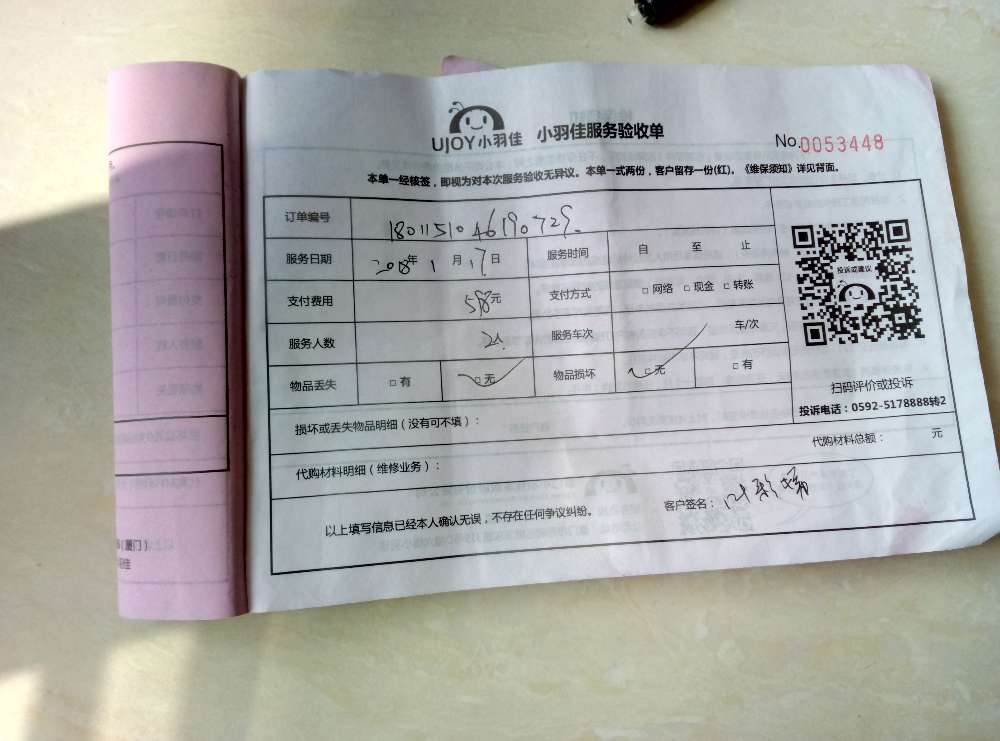 UJOY小羽佳 小羽佳服务验收单
No.0053448
本单一经核签，即视为对本次服务验收无异议。本单一式两份，客户留存一份(红)。《维保须知》详见背面。
订单编号 180115104619072S
服务日期 2018年1月17日 服务时间 自 至 止
支付费用 元 支付方式 □网络 □现金 □转账
服务人数 2人 服务车次 车/次
物品丢失 □有 □无 物品损坏 □无 □有
投诉或建议
扫码评价或投诉
投诉电话：0592-5178888转2
损坏或丢失物品明细（没有可不填）：
代购材料明细（维修业务）： 代购材料总额： 元
以上填写信息已经本人确认无误，不存在任何争议纠纷。 客户签名：叶彩
（厦门）